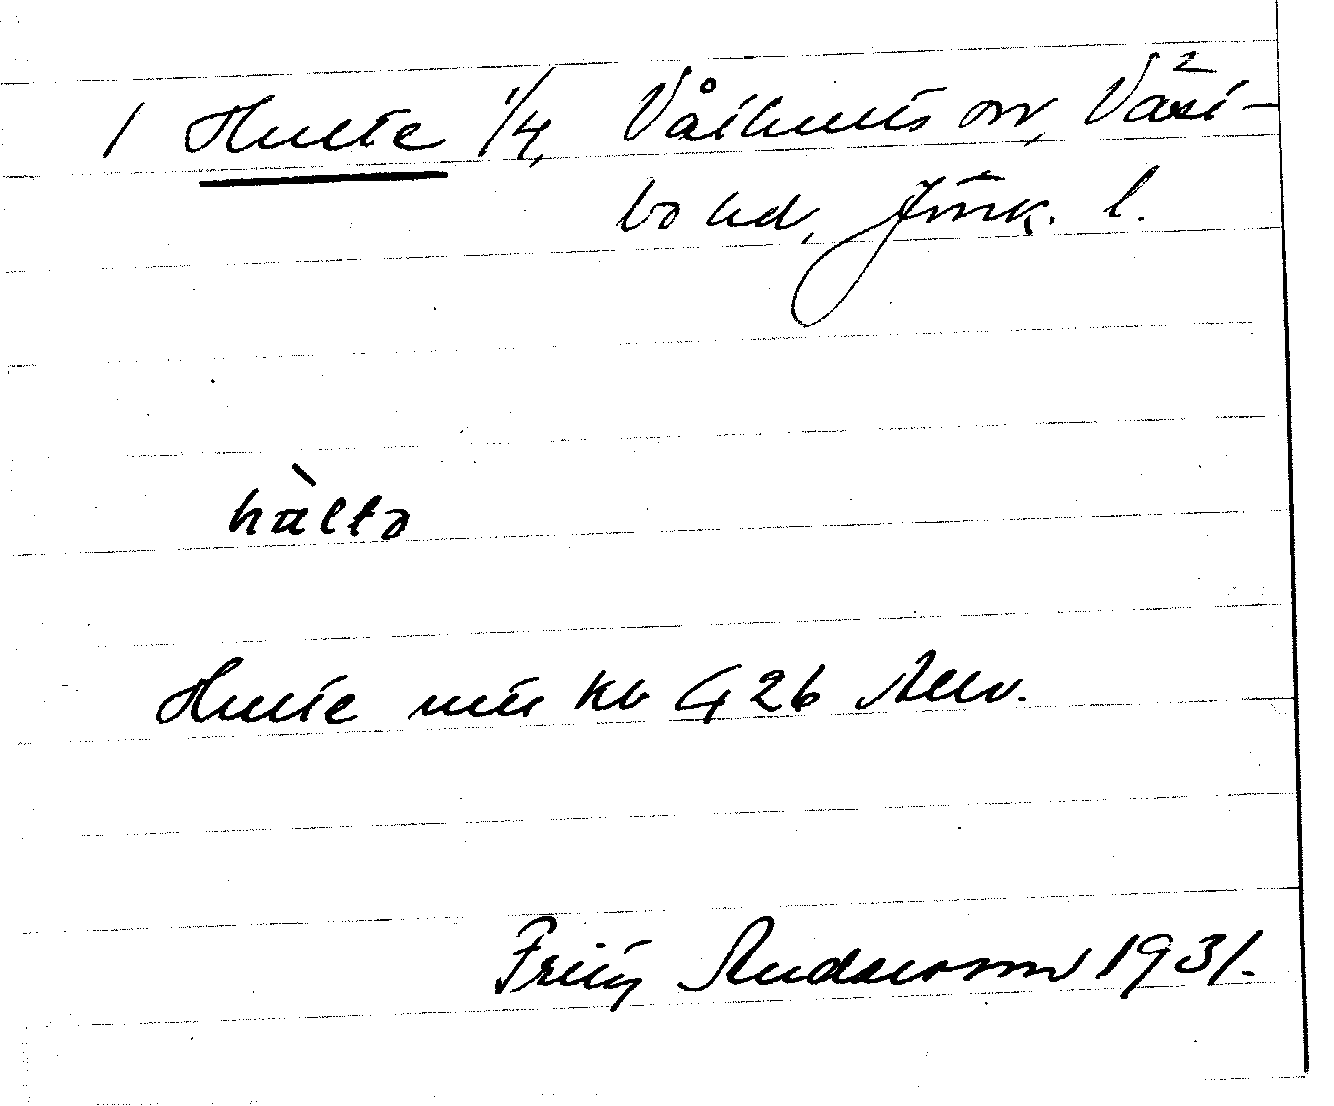 1 Hulte 1/4, Våthults sn, Västbo hd, Jönk. l.
hàlta
Hulte mtr kb 426 Alw.
Fritz Andersson 1931.